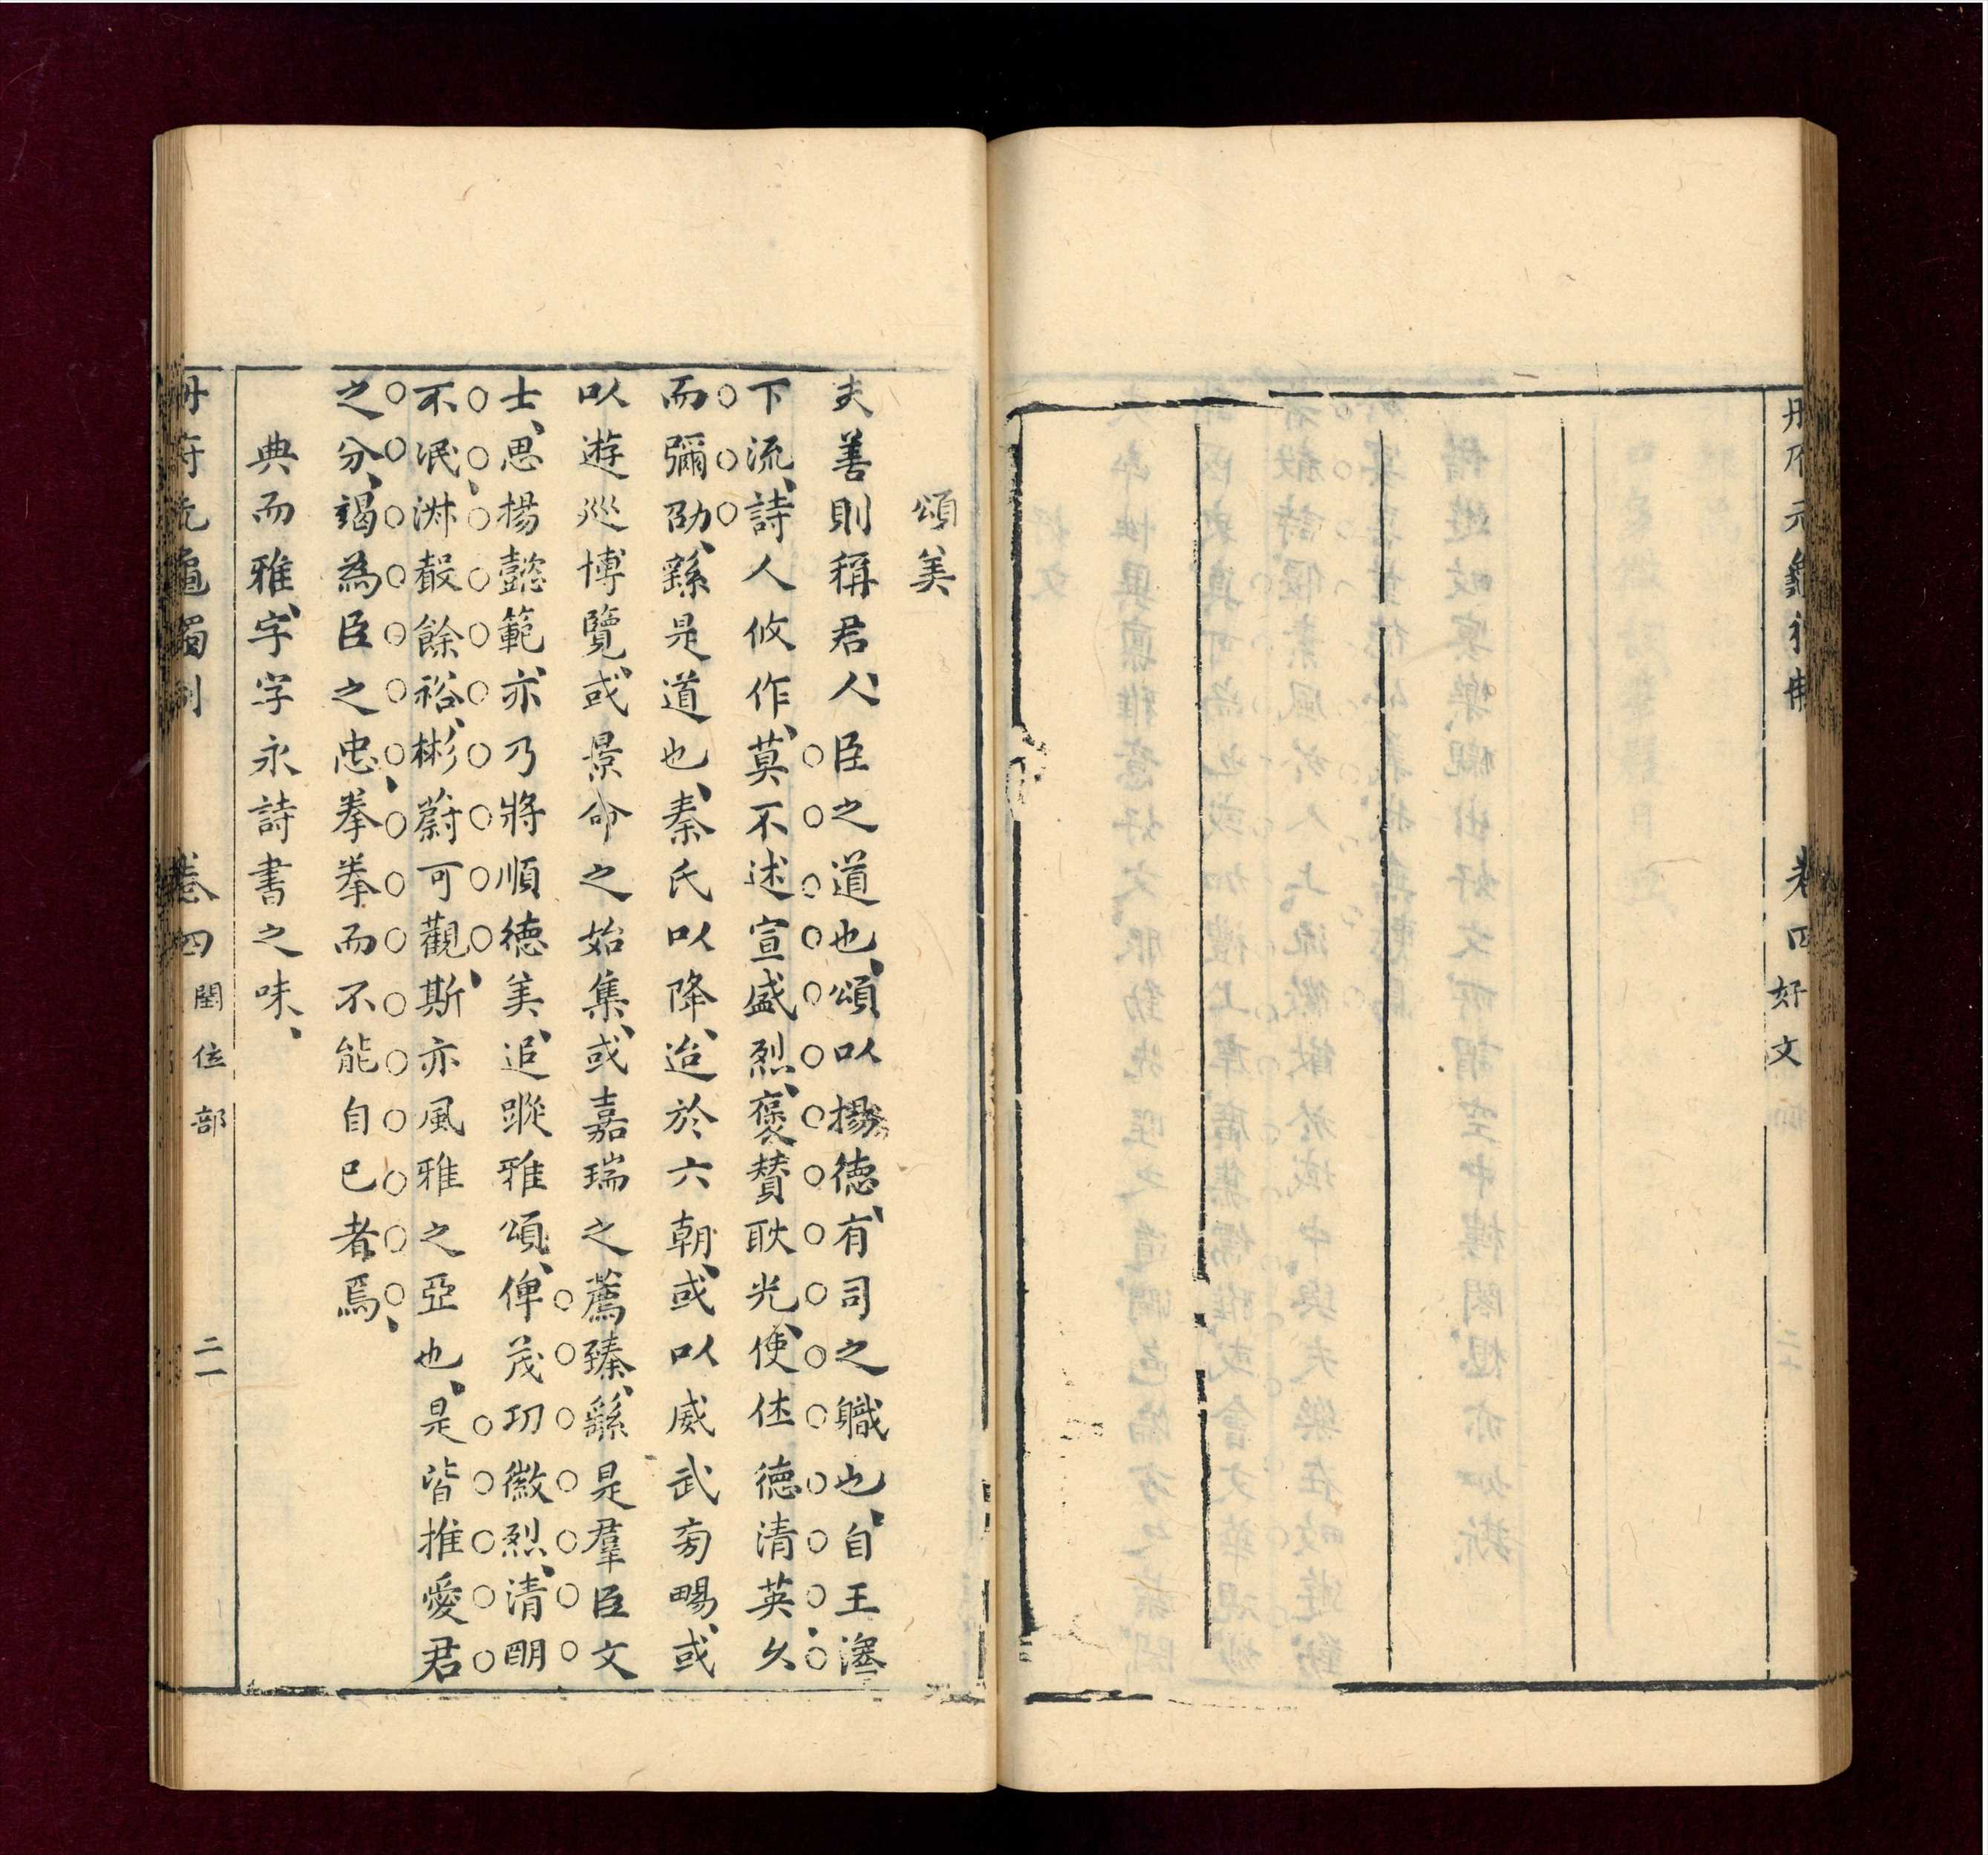 冊府元龜獨制 卷四 好文
頌美
夫善則稱君人臣之道也頌以揚德有司之職也自王澤
下流詩人攸作莫不述宣盛烈褒贊耿光使休德清英久
而彌劭繇是道也秦氏以降迨於六朝或以威武旁暢或
以遊巡博覽或景命之始集或嘉瑞之薦臻繇是羣臣文
士思揚懿範亦乃將順德美追蹤雅頌俾茂功徽烈清明
不泯淋馨餘裕彬蔚可觀斯亦風雅之亞也是皆推愛君
之分竭為臣之忠拳拳而不能自已者焉
典而雅字字永詩書之味
冊府元龜獨制 卷四 閏位部 二一